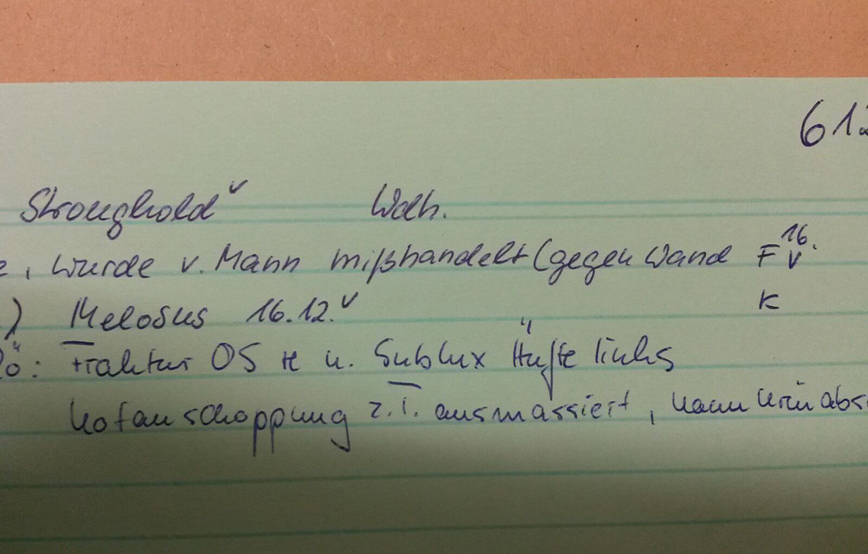 612
Stronghold ✓ Wdh.
, wurde v. Mann mißhandelt (gegen Wand F 16.
) Melosus 16.12. ✓ K
Rö: Fraktur OS re u. Sublux Hüfte links
Kotanschoppung z.T. ausmassiert, kann Urin abs